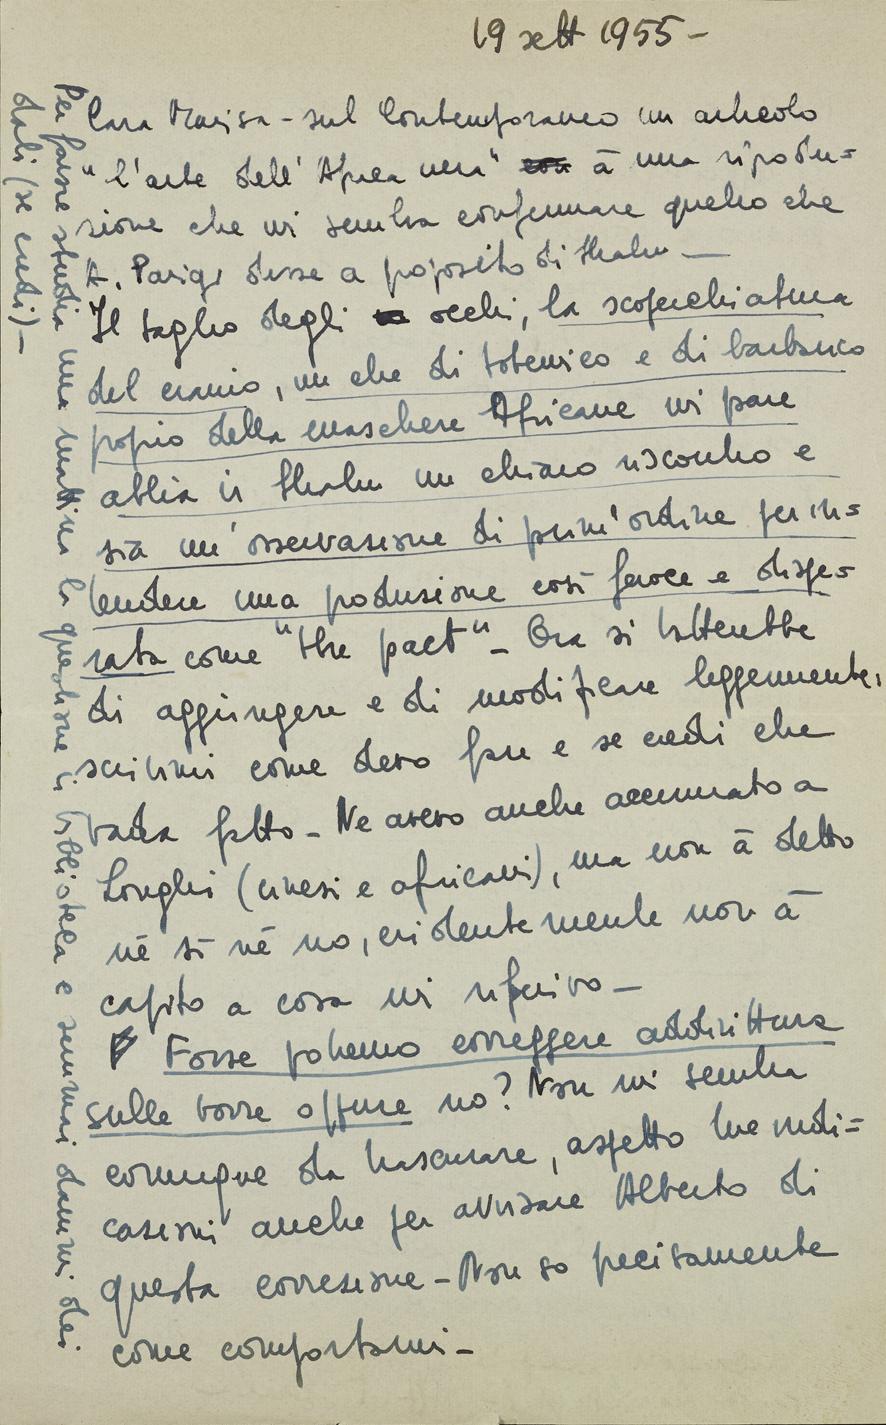 19 sett 1955 -
Cara Marisa - sul Contemporaneo un articolo
"l'arte dell'Africa nera" à una riprodu=
zione che mi sembra confermare quello che
A. Parigi disse a proposito di Shahn —
Il taglio degli occhi, la scoperchiatura
del cranio, un che di totemico e di barbarico
proprio della maschere Africane mi pare
abbia in Shahn un chiaro riscontro e
sia un'osservazione di prim'ordine per in=
tendere una produzione così feroce e dispe=
rata come "the pact" - Ora si tratterebbe
di aggiungere e di modificare leggermente,
scrivimi come devo fare e se credi che
vada fatto - Ne avevo anche accennato a
Longhi (cinesi e africani), ma non à detto
né sì né no, evidentemente non à
capito a cosa mi riferivo —
Forse potremo correggere addirittura
sulle bozze oppure no? Non mi sembra
comunque da trascurare, aspetto tue indi=
cazioni anche per avvisare Alberto di
questa correzione - Non so precisamente
come comportarmi -
Per favore studia una mattina la questione in biblioteca e semmai dammi dei
dati (se credi) —